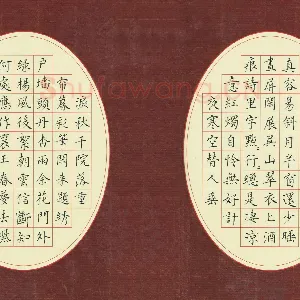 真容易斜月半窗還少睡
畫屏閑展吳山翠衣上酒
痕詩里字點點行行總是淒涼
意紅燭自憐無好計
夜寒空替人垂
淚秋千院落重
帘暮彩筆閑來題綉
戶墻頭丹杏雨余花門外
綠楊風後絮朝雲信斷知
何處應作襄王春夢去